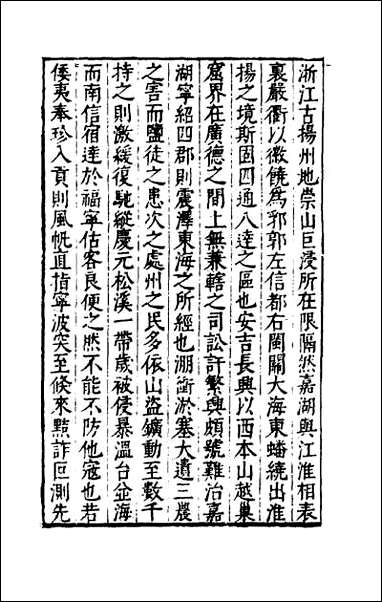 浙江古揚州地崇山巨浸所在限隔然嘉湖與江淮相表
裏嚴衢以徽饒為郛郭左信都右閩關大海東蟠繞出淮
揚之境斯固四通八達之區也安吉長興以西本山越巢
窟界在廣德之間上無兼轄之司訟訐繁興頗號難治嘉
湖寧紹四郡則震澤東海之所經也淜衝淤塞大遺三農
之害而鹽徒之患次之處州之民多依山盜鑛動至數千
持之則激緩復馳縱慶元松溪一帶歲被侵暴溫台並海
而南信宿達於福寧估客良便之然不能不防他寇也若
倭夷奉珍入貢則風帆直指寧波突至倏來黠詐叵測先